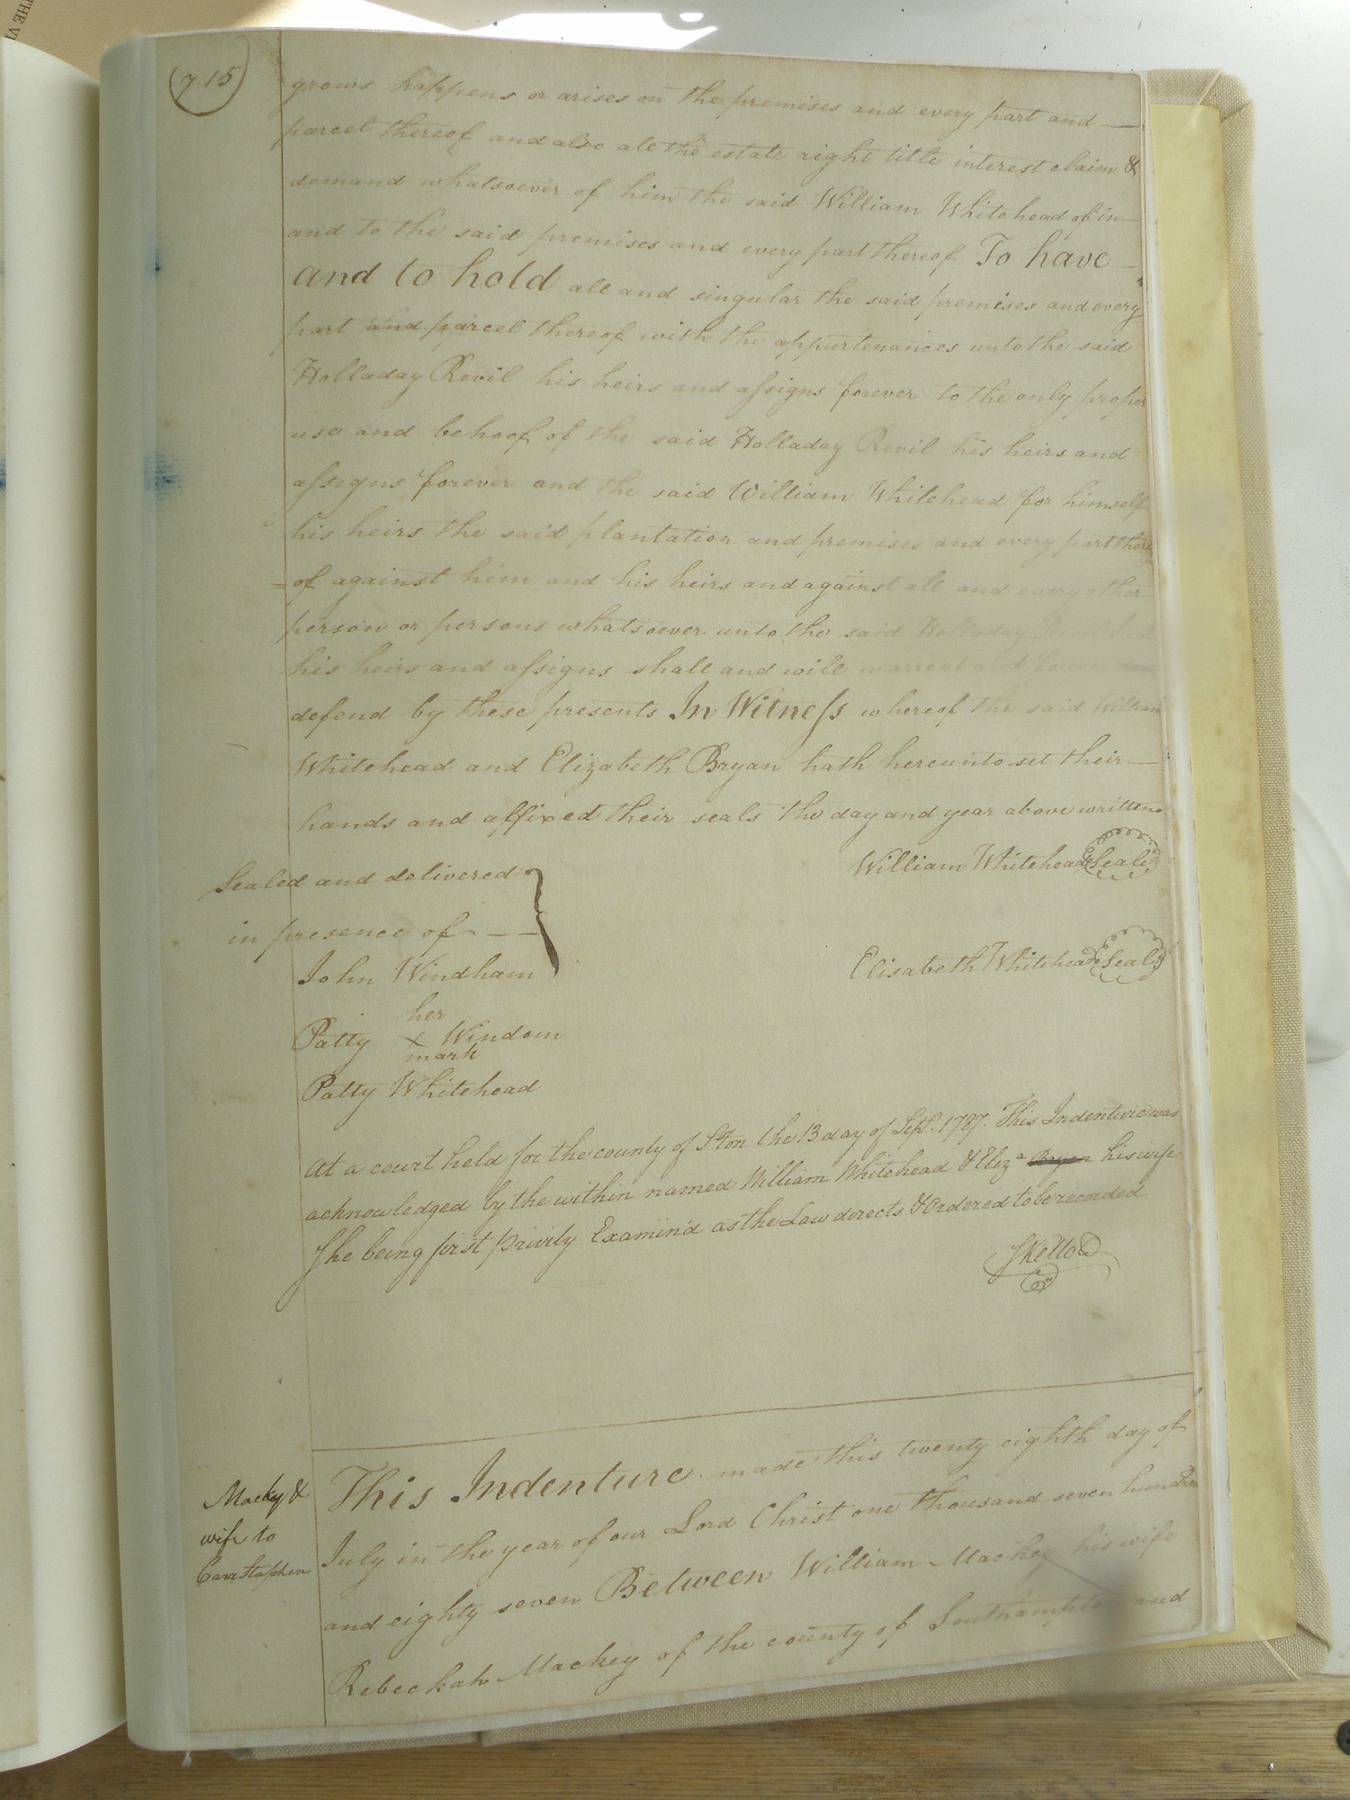 715
grows happens or arises on the premises and every part and
parcel thereof and also all the estate right title interest claim &
demand whatsoever of him the said William Whitehead of in
and to the said premises and every part thereof To have
and to hold all and singular the said premises and every
part and parcel thereof with the appurtenances unto the said
Holladay Revil his heirs and assigns forever to the only proper
use and behoof of the said Holladay Revil his heirs and
assigns forever and the said William Whitehead for himself
his heirs the said plantation and premises and every part there
=of against him and his heirs and against all and every other
person or persons whatsoever unto the said Holladay Revil
his heirs and assigns shall and will warrant and forever
defend by these presents In Witness whereof the said William
Whitehead and Elizabeth Bryan hath hereunto set their
hands and affixed their seals the day and year above written
William Whitehead Seal
Sealed and delivered
in presence of
Elisabeth Whitehead Seal
John Windham
her
Patty x Windom
mark
Patty Whitehead
At a court held for the county of S.ton the 13 day of Sept. 1787. This Indenture was
acknowledged by the within named William Whitehead & Eliz.a Bryan his wife
She being first privily Examin'd as the Law directs & Ordered to be recorded
SKello
Mackey &
wife to
Carr Stephen
This Indenture made this twenty eighth day of
July in the year of our Lord Christ one thousand seven hundred
and eighty seven Between William Mackey his wife
Rebeckah Mackey of the county of Southampton and